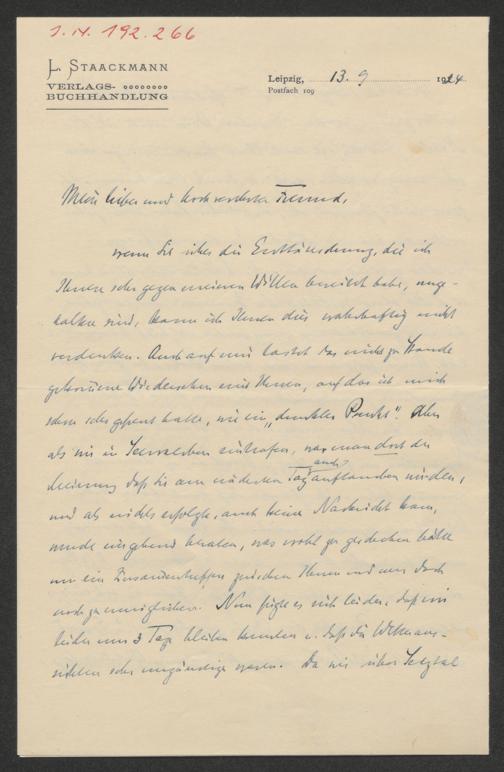 J. N. 192.266
L. STAACKMANN
VERLAGS-
BUCHHANDLUNG
Leipzig, 13. 9 1924
Postfach 109
Mein lieber und hochverehrter Freund,
wenn Sie über die Enttäuschung, die ich
Ihnen sehr gegen meinen Willen bereitet habe, unge-
halten sind, kann ich Ihnen dies wahrhaftig nicht
verdenken. Auch auf mir lastet das nicht zu Stande
gekommene Wiedersehen mit Ihnen, auf das ich mich
schon sehr gefreut hatte, wie ein „dunkler Punkt“. Aber
als wir in eintrafen, war man dort der
Meinung daß Sie am nächsten Tag auch auftauchen würden,
und als nichts erfolgte, auch keine Nachricht kam,
wurde eingehend beraten, was wohl zu geschehen hätte
um ein Zusammentreffen zwischen Ihnen und uns doch
noch zu ermöglichen. Nun fügte es sich leider, daß wir
leider nur 3 Tage bleiben konnten u. daß die Wetteraus-
sichten sehr ungünstige waren. Da wir über